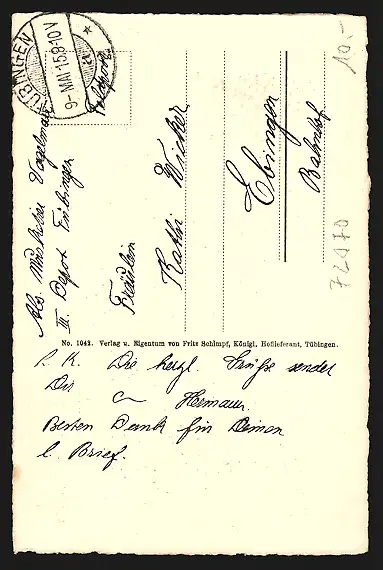 TÜBINGEN
9-MAI 15 8-10 V
Feldpost
Abs. Musketier Vogelmann
III Depot Tübingen
Fräulein
Käthi Wicker
Ebingen
Bahnhof
10,-
72070
No. 1043. Verlag u. Eigentum von Fritz Schimpf, Königl. Hoflieferant, Tübingen.
L. K. Die herzl. Grüße sendet
Dir
Hermann
Besten Dank für Deinen
l. Brief.